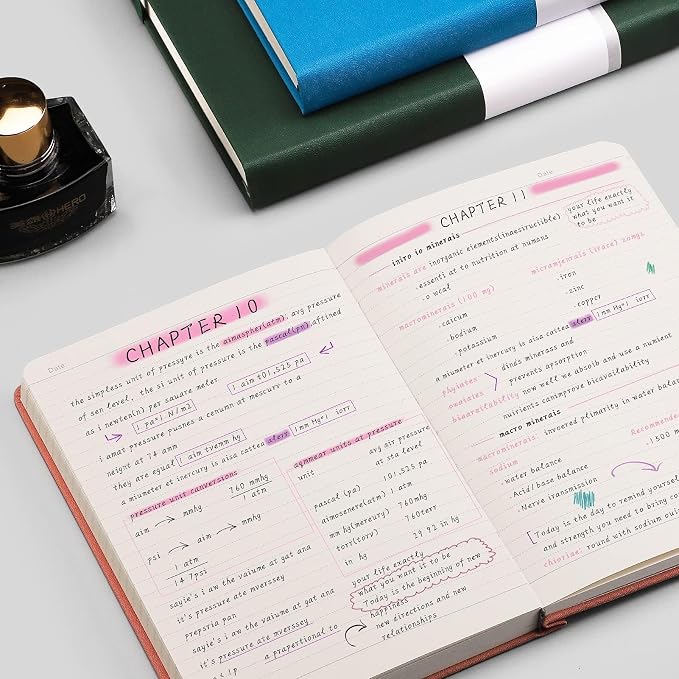 HERO
Date
CHAPTER 10
the simpless unit of pressyre is the aimaspher(atm). avg pressure
of sen level. the si unit of pressure is the pascal(pn) aftined
as i newten(n) per sauare meler 1 aim ≠01,525 pa
1 pa=1 N/m2
i amat pressure pusnes a cenunn at mescurv to a
neignt at 7± amm
they are egual 1 aim tvemm hg
a miumeter et inercury is aisa cattea alerr 1 mm Hg=1 iorr
pressure unit canversions
aim → mmhg 760 mmhg
1 atm
psi → aim → mmhg
1 atm
14 7psi
sayie's i aw the vaiume at gat ana
it's pressure ate mverssey
prepsria pan
sayie's i aw the vaiume at gat ana
it's pressure ate mverssey
a prapertional to
aqmmear units at pressure
unit avg air pressure
at sta level
pascal (pa) 101,525 pa
aimosenere(atm) 1 atm
mm hg(mereury) 760mhg
torr(torv) 760terr
in hg 29 92 in hg
your life exactly
what you want it to be
Today is the beginning of new
happiness
new directions and new
relationships
Date
CHAPTER 11
your life exactly
what you want it
to be
iniro io minerais
minerais are inorganic elements(inaesiruciible)
.essenti at to nutrition at numans
.o wcal
macrominerais (100 mg)
.caicum
.bodium
.potassium
micramjnerais (irace) zomgs
.iron
.zinc
.copper
a miumeter et inercury is aisa cattea alerr 1 mm Hg=1 iorr
phyiates
oxaiates
dinds minerass and
prevents apsorption
bioavaitability now well we absoib and use a nutient
nutients canimprove bicavailability
macro minerals
macrominerais: invoered plimarity in water balance
sodium
Recommende
.1500 m
.water balance
.Acid/ base balance
.Nerve transmission
Today is the day to remind yourself
and strength you need to bring
chioriae: round with sodium